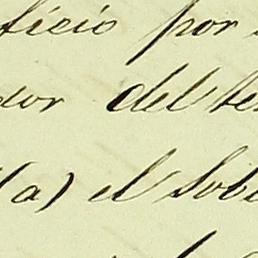 ficio por
dor del te
(a) el Sob